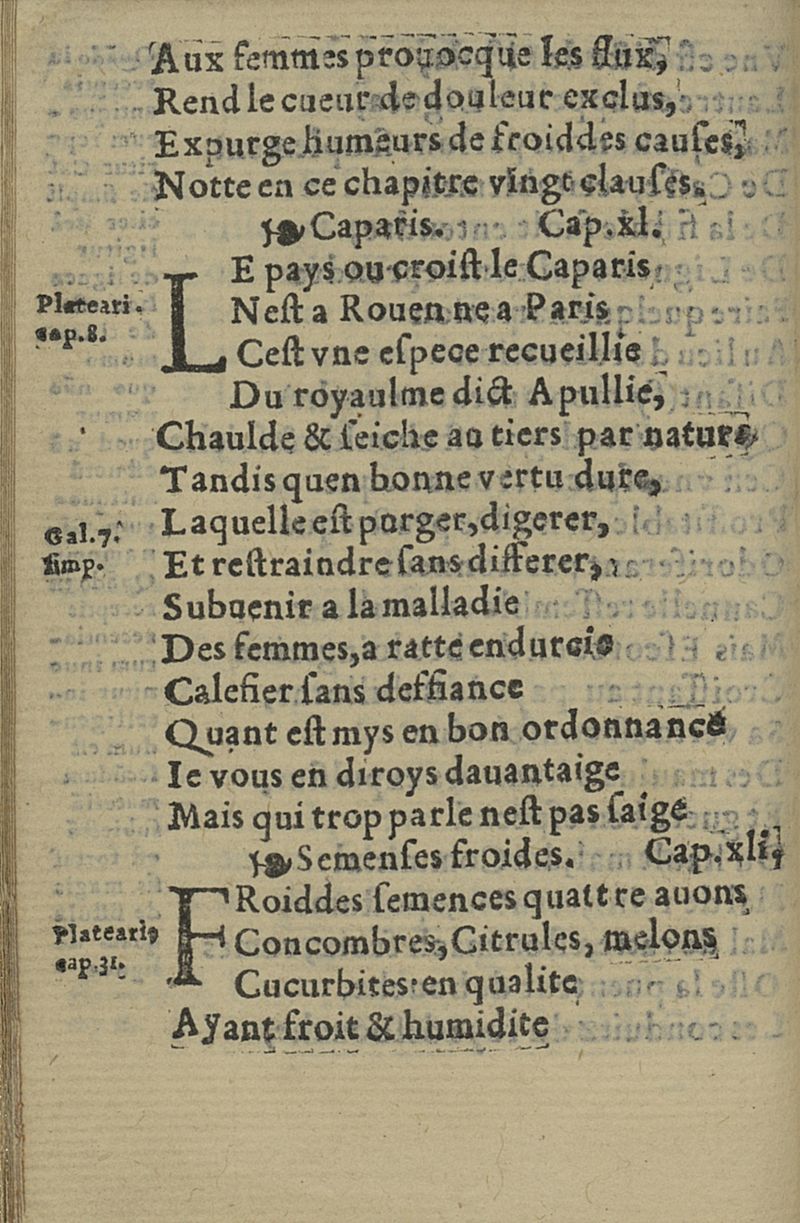 Aux femmes prouocque les flux,
Rend le cueur de douleur exclus,
Expurge humeurs de froiddes cauſes,
Notte en ce chapitre vingt clauſes.
Caparis. Cap.xl.
LE pays ou croiſt le Caparis
Plateari. cap.8.
Neſt a Rouen ne a Paris
Ceſt vne eſpece recueillie
Du royaulme dict Apullie,
Chaulde & ſeiche au tiers par nature
Tandis quen bonne vertu dure,
Gal.7. ſimp.
Laquelle eſt purger, digerer,
Et reſtraindre ſans differer,
Subuenir a la malladie
Des femmes, a ratte endurcie
Calefier ſans deffiance
Quant eſt mys en bon ordonnance
Ie vous en diroys dauantaige
Mais qui trop parle neſt pas ſaige
Semenſes froides. Cap.xli,
FRoiddes ſemences quattre auons
Plateariꝰ cap.31.
Concombres, Citrules, melons
Cucurbites en qualite
Ayant froit & humidite